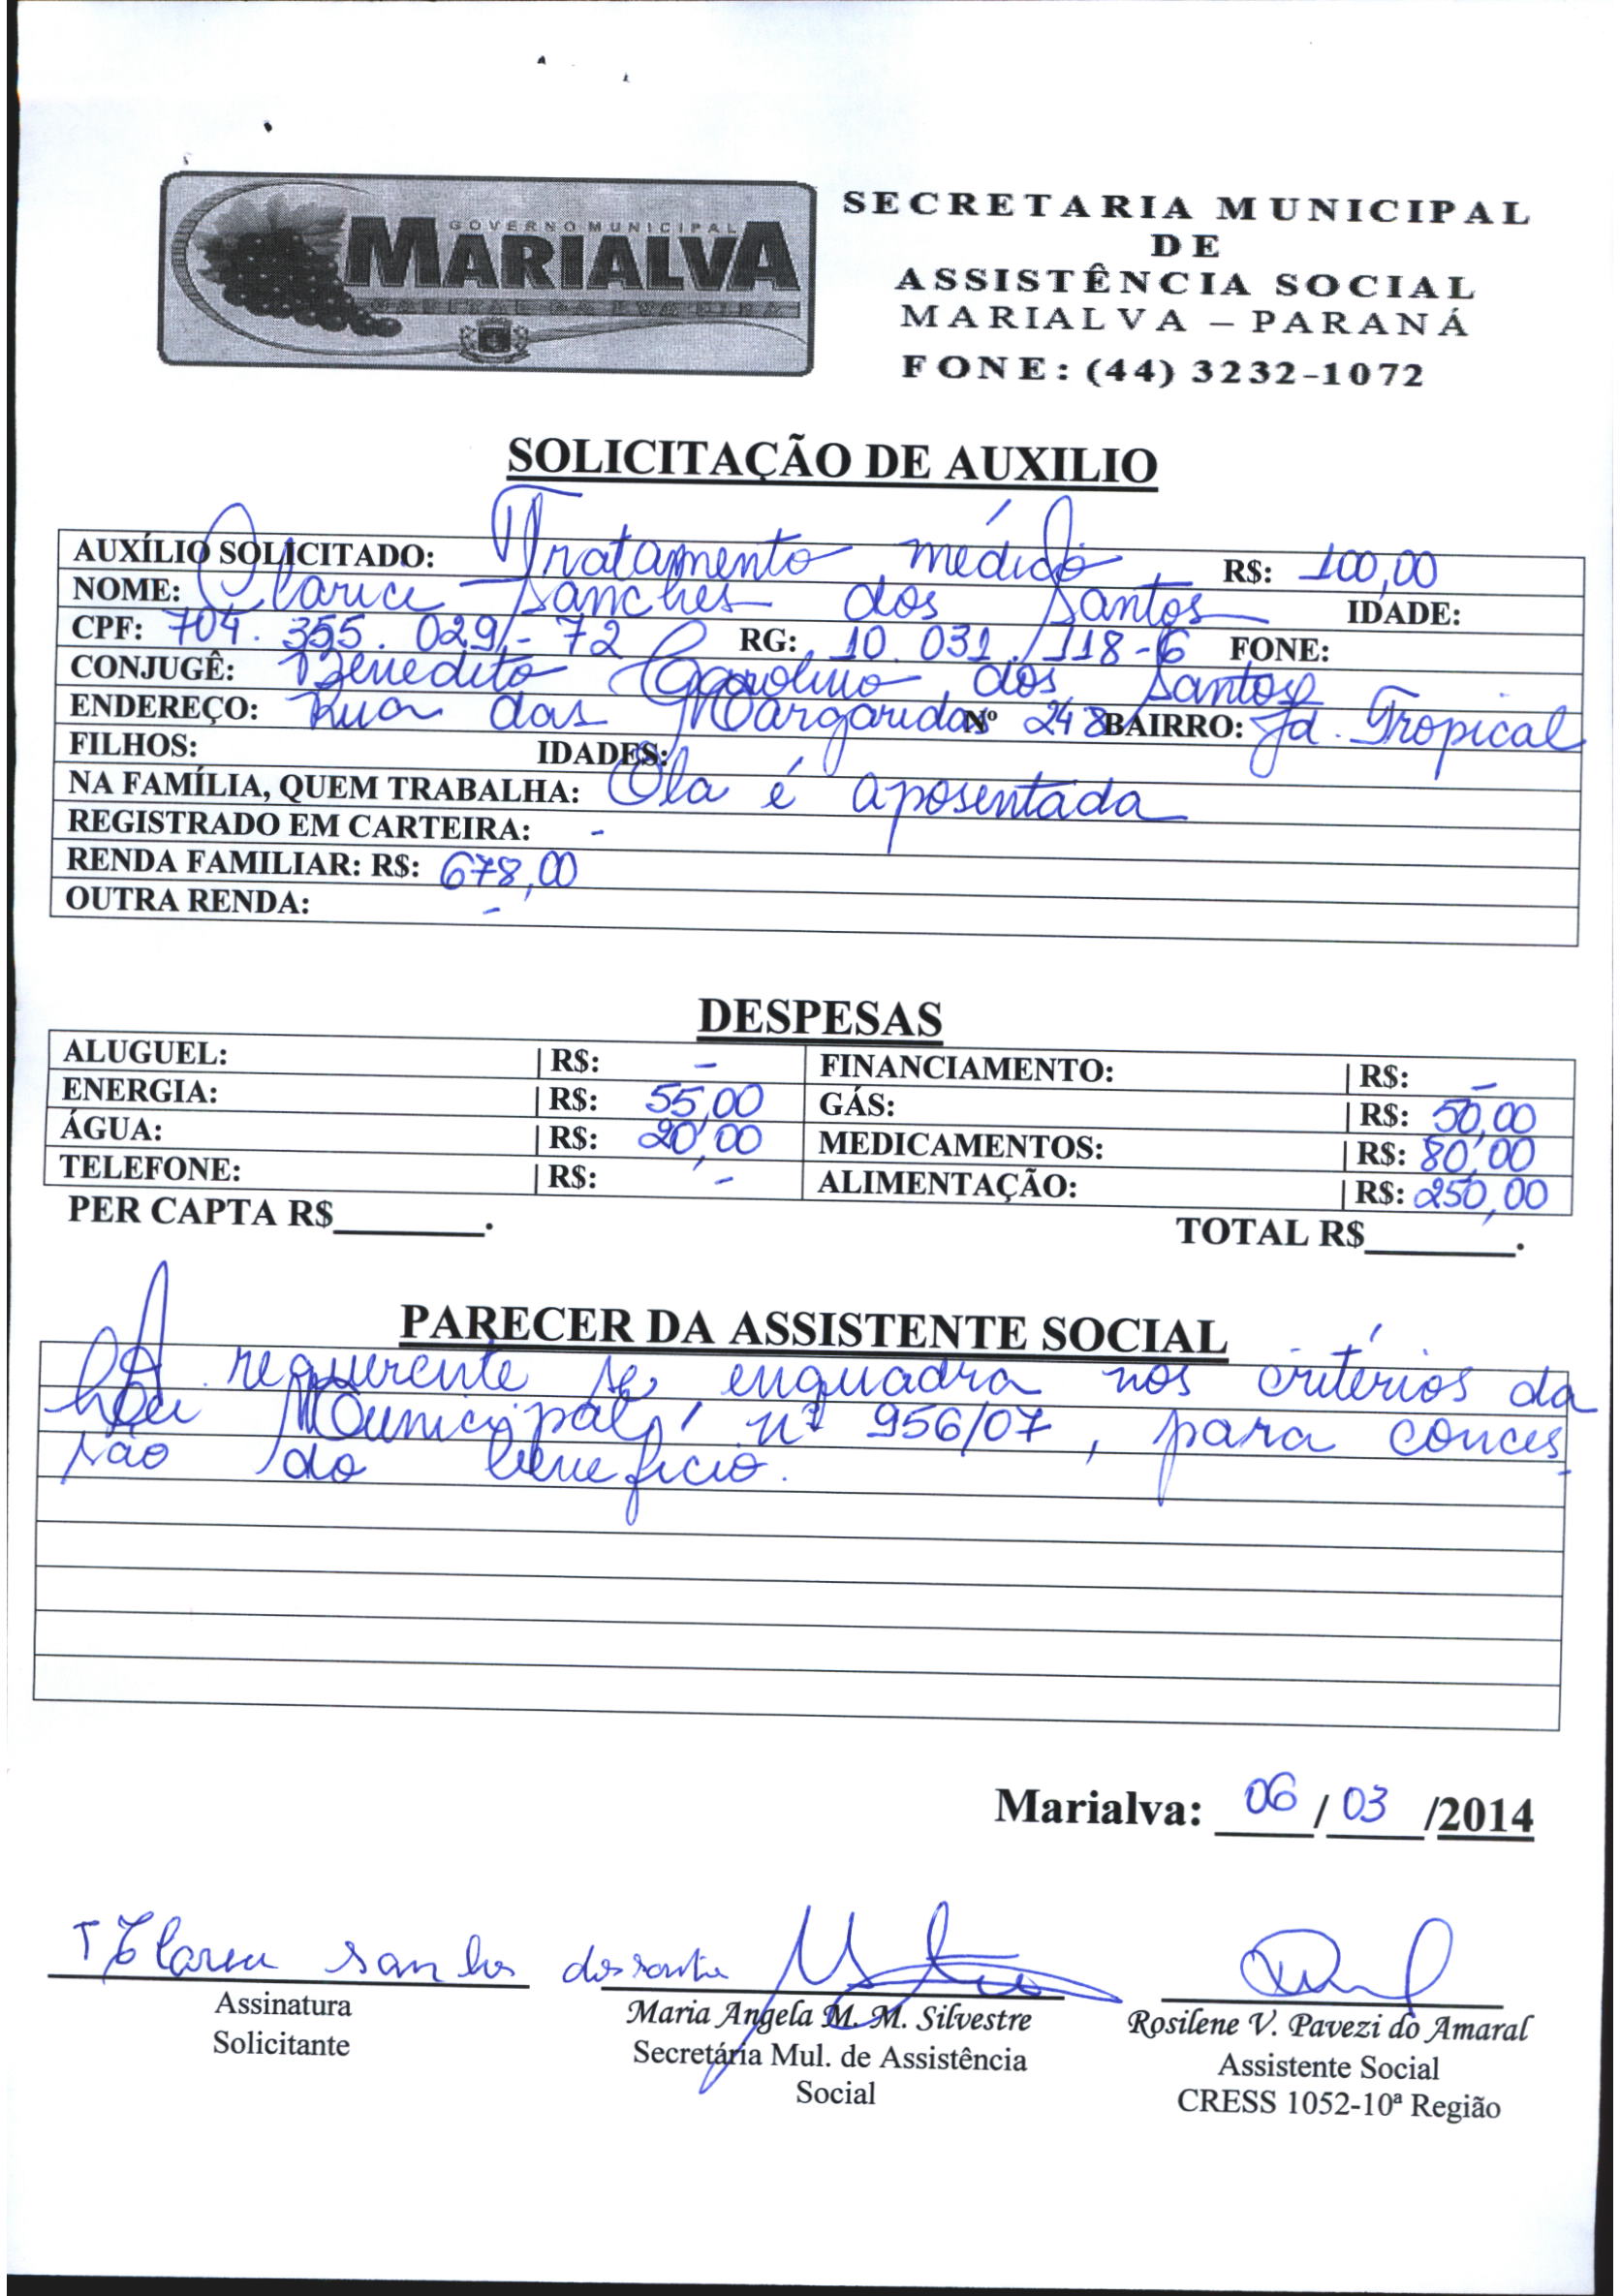 GOVERNO MUNICIPAL
MARIALVA
SECRETARIA MUNICIPAL
DE
ASSISTÊNCIA SOCIAL
MARIALVA – PARANÁ
FONE: (44) 3232-1072
SOLICITAÇÃO DE AUXILIO
AUXÍLIO SOLICITADO: Tratamento médico R$: 100,00
NOME: Clarice Sanches dos Santos IDADE:
CPF: 704.355.029-72 RG: 10.031.118-6 FONE:
CONJUGÊ: Benedito Carolino dos Santos
ENDEREÇO: Rua das Margaridas Nº 248 BAIRRO: Jd. Tropical
FILHOS: IDADES:
NA FAMÍLIA, QUEM TRABALHA: Ela é aposentada
REGISTRADO EM CARTEIRA: -
RENDA FAMILIAR: R$: 678,00
OUTRA RENDA: -
DESPESAS
ALUGUEL: | R$: - FINANCIAMENTO: | R$: -
ENERGIA: | R$: 55,00 GÁS: | R$: 50,00
ÁGUA: | R$: 20,00 MEDICAMENTOS: | R$: 80,00
TELEFONE: | R$: - ALIMENTAÇÃO: | R$: 250,00
PER CAPTA R$________. TOTAL R$________.
PARECER DA ASSISTENTE SOCIAL
A requerente se enquadra nos critérios da
Lei Municipal nº 956/07, para conces-
são do benefício.
Marialva: 06/03/2014
Clarice Sanches dos Santos
Assinatura
Solicitante
Maria Angela M. M. Silvestre
Secretária Mul. de Assistência
Social
Rosilene V. Pavezi do Amaral
Assistente Social
CRESS 1052-10ª Região